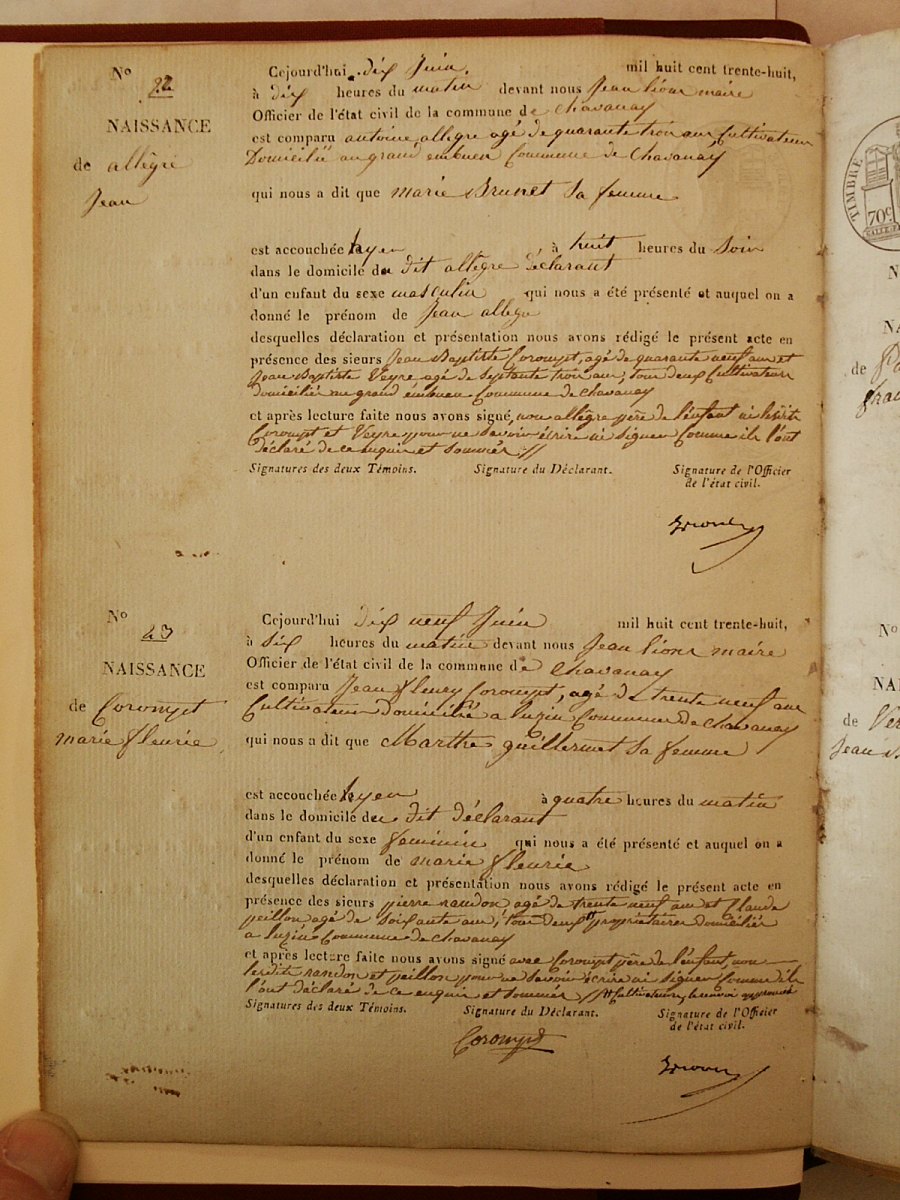 N° 22
NAISSANCE
de allègre
Jean
Cejourd'hui dix Juin mil huit cent trente-huit,
à dix heures du matin devant nous Jean lioure maire
Officier de l'état civil de la commune de Chavanay
est comparu antoine allegre agé de quarante trois ans Cultivateur
Domicilié au grand embuen Commune de Chavanay
qui nous a dit que marie Brunet sa femme
est accouchée hyer à huit heures du soir
dans le domicile du dit allègre déclarant
d'un enfant du sexe masculin qui nous a été présenté et auquel on a
donné le prénom de Jean allegre
desquelles déclaration et présentation nous avons rédigé le présent acte en
présence des sieurs Jean Baptiste Corompt, agé de quarante neuf ans et
Jean Baptiste Veyre agé de Septante trois ans; tous deux Cultivateurs
domiciliés au grand embuen Commune de Chavanay
et après lecture faite nous avons signé, non allègre père de l'enfant ni lesdits
Corompt et Veyre pour ne savoir écrire ni signer Comme ils l'ont
déclaré de ce enquis et sommés //
Signatures des deux Témoins. Signature du Déclarant. Signature de l'Officier
de l'état civil.
N° 23
NAISSANCE
de Corompt
marie fleurie
Cejourd'hui dix neuf Juin mil huit cent trente-huit,
à dix heures du matin devant nous Jean lioure maire
Officier de l'état civil de la commune de Chavanay
est comparu Jean fleury Corompt, agé de trente neuf ans
Cultivateur domicilié a luzin Commune de Chavanay
qui nous a dit que Marthe guillermet sa femme
est accouchée hyer à quatre heures du matin
dans le domicile du dit déclarant
d'un enfant du sexe feminin qui nous a été présenté et auquel on a
donné le prénom de marie fleurie
desquelles déclaration et présentation nous avons rédigé le présent acte en
présence des sieurs pierre randon agé de trente neuf ans et Claude
peillon agé de soixante ans, tous deux propriétaires domiciliés
a luzin Commune de Chavanay
et après lecture faite nous avons signé avec Corompt père de l'enfant, non
lesdits randon et peillon pour ne savoir écrire ni signer Comme ils
l'ont déclaré de ce enquis et sommés // Cultivateurs, le renvoi approuvé
Signatures des deux Témoins. Signature du Déclarant. Signature de l'Officier
de l'état civil.
Corompt
TIMBRE
70c
N
NA
de
N°
NA
de Ver
Jean